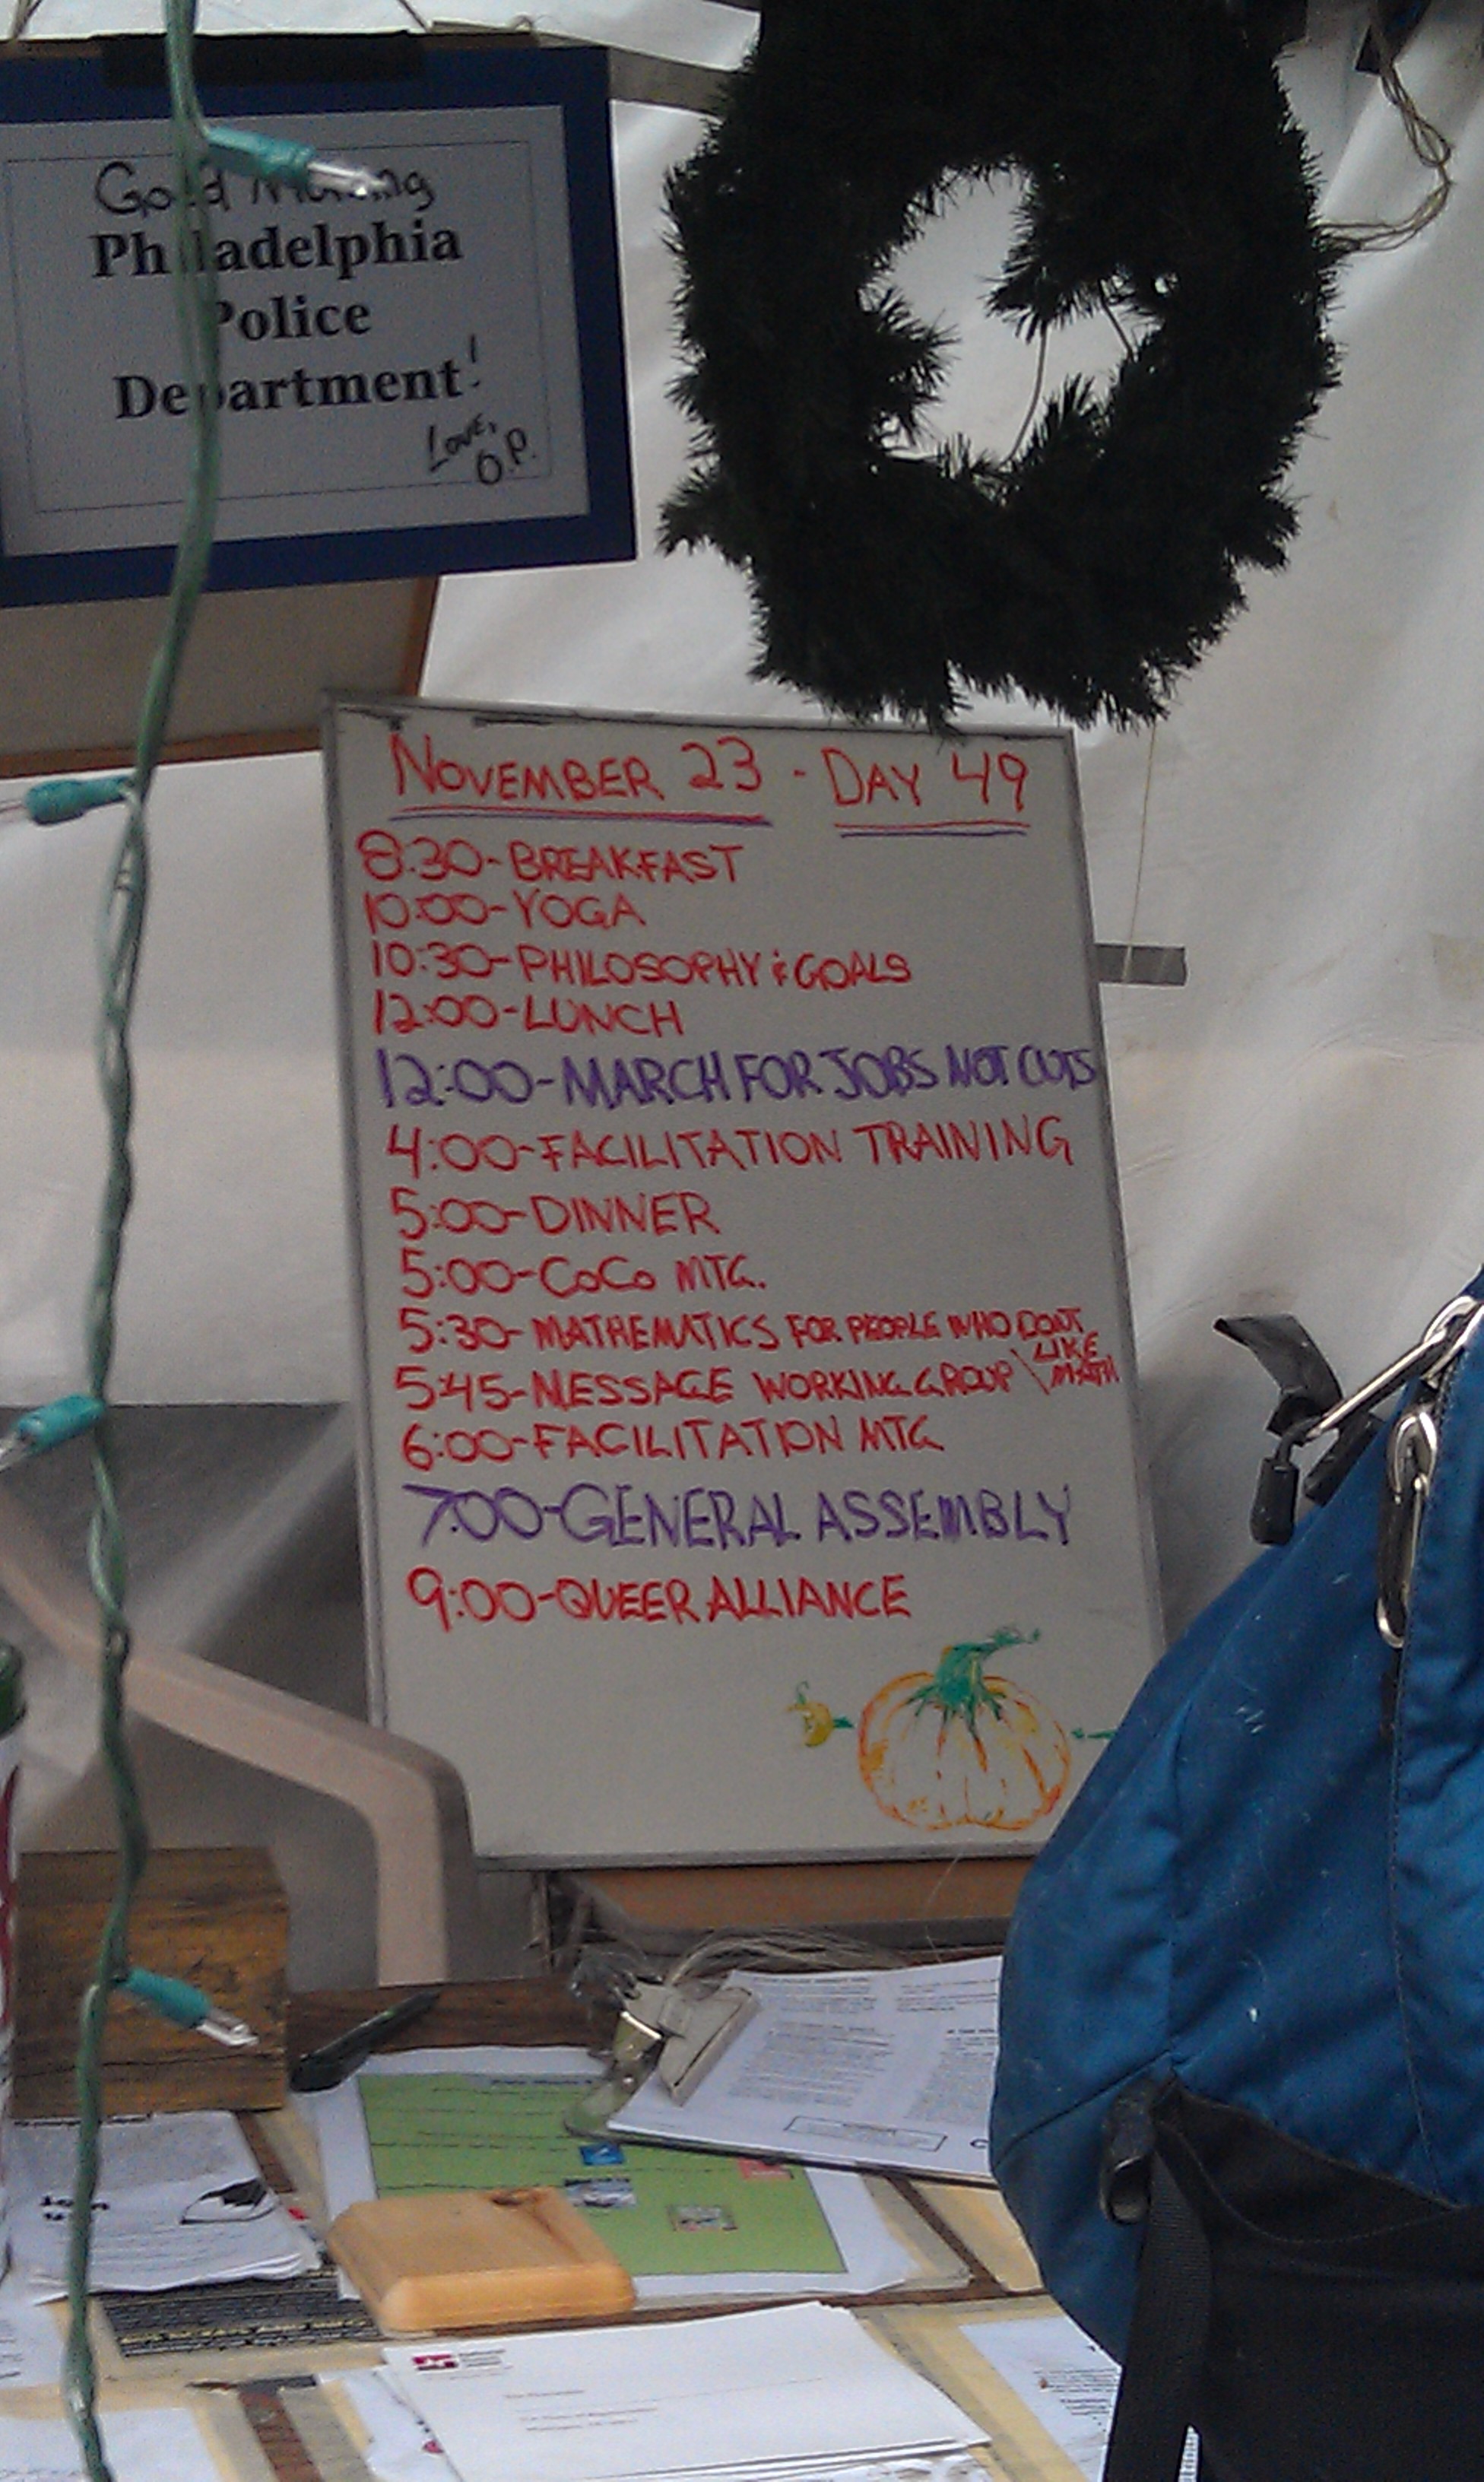 Good Morning
Philadelphia
Police
Department!
Love,
O.P.
NOVEMBER 23 - DAY 49
8:30-BREAKFAST
10:00-YOGA
10:30-PHILOSOPHY & GOALS
12:00-LUNCH
12:00-MARCH FOR JOBS NOT CUTS
4:00-FACILITATION TRAINING
5:00-DINNER
5:00-COCO MTG.
5:30-MATHEMATICS FOR PEOPLE WHO DONT
LIKE
MATH
5:45-MESSAGE WORKING GROUP
6:00-FACILITATION MTG
7:00-GENERAL ASSEMBLY
9:00-QUEER ALLIANCE